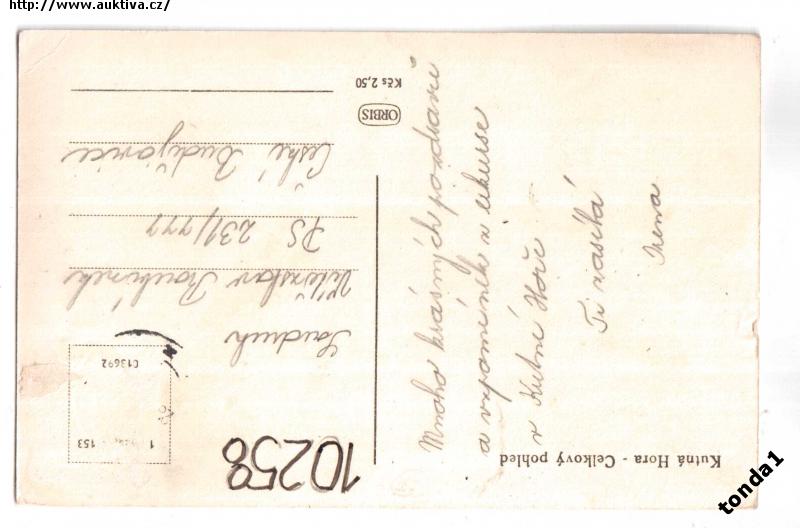 http://www.auktiva.cz/
Kutná Hora - Celkový pohled
Mnoho krásných pozdravů
a vzpomínek z exkurse
v Kutné Hoře
Ti zasílá
Irena
Soudruh
Vítězslav
PS 231/777
České Budějovice
ORBIS
Kčs 2,50
C13692
1
153
10258
tonda1